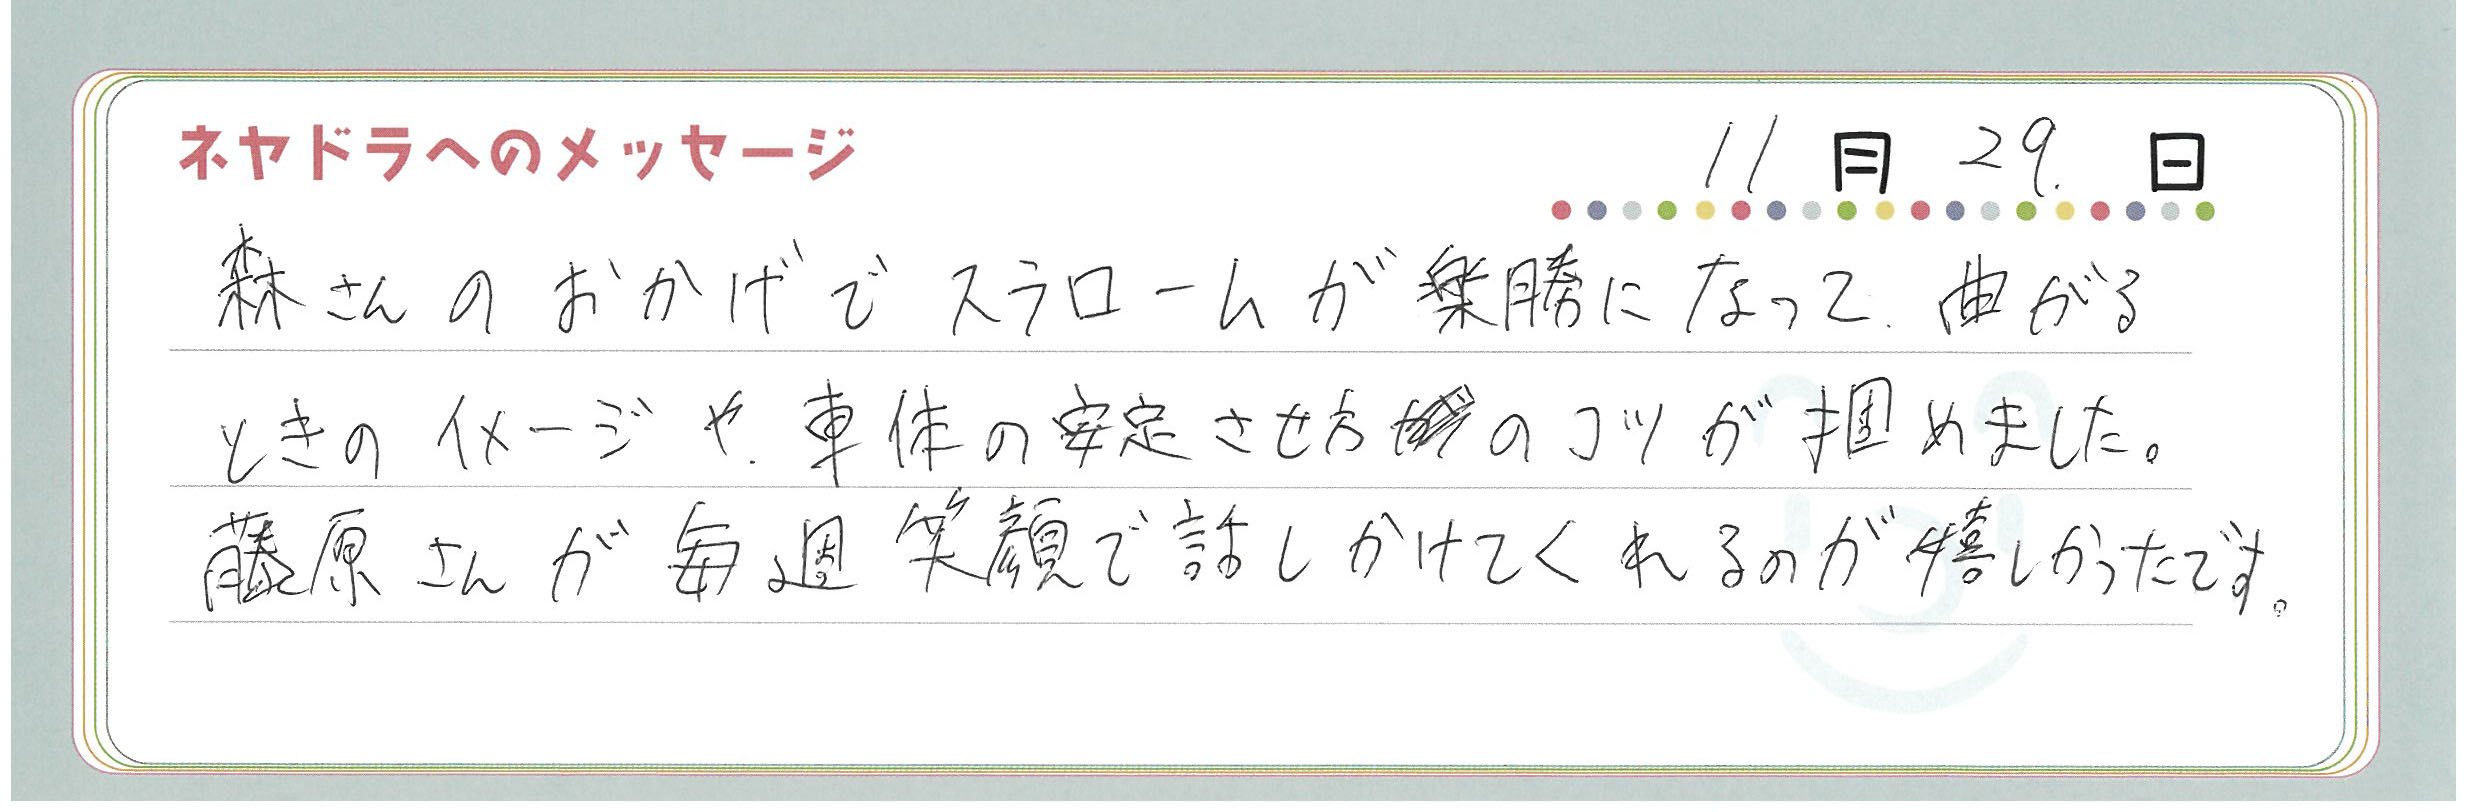 ネヤドラへのメッセージ
11月29日
森さんのおかげでスラロームが楽勝になって、曲がる
ときのイメージや、車体の安定させ方のコツが掴めました。
藤原さんが毎週笑顔で話しかけてくれるのが嬉しかったです。